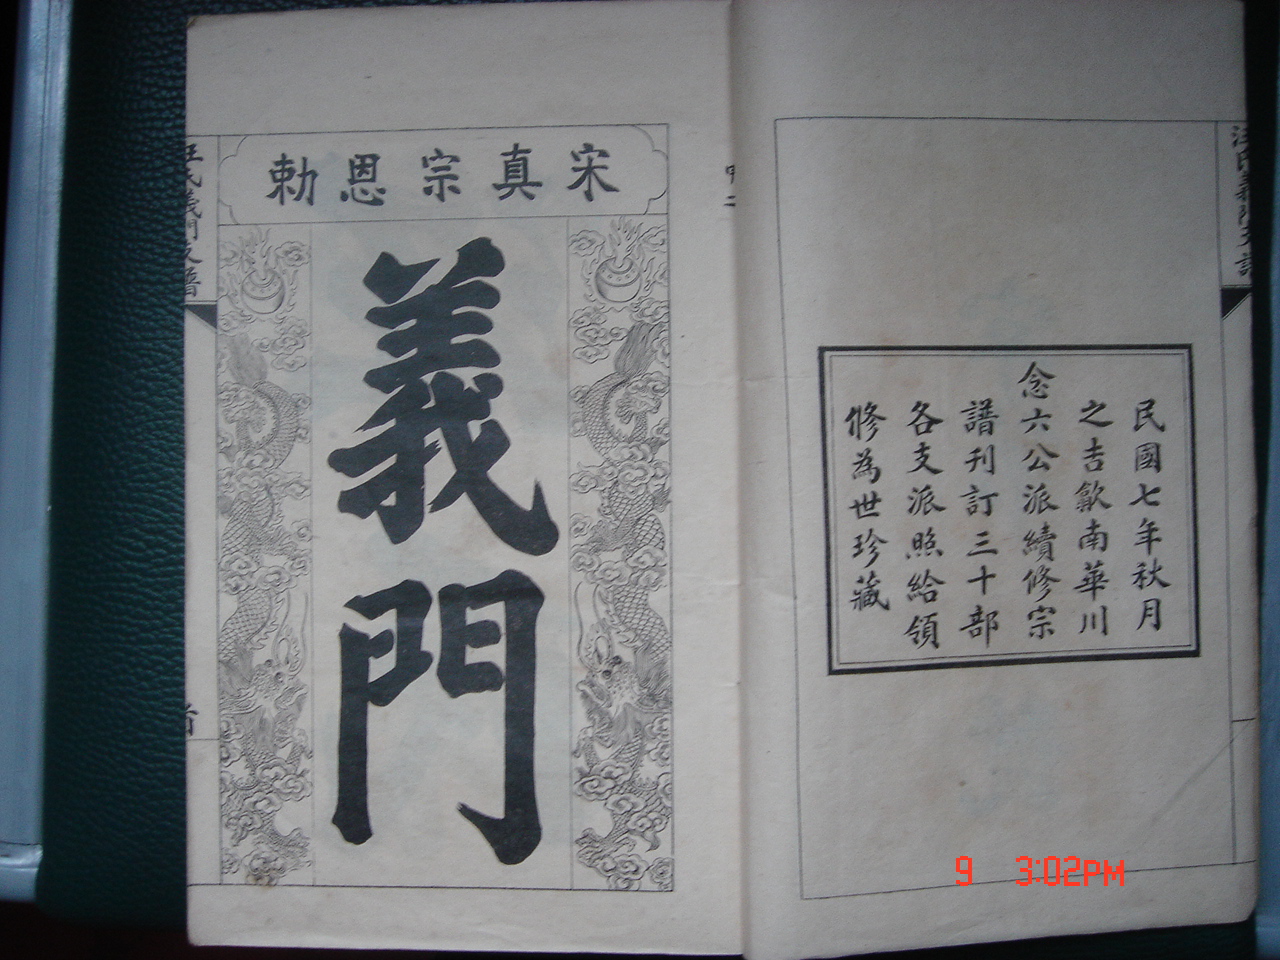 民國七年秋月
之吉歙南華川
念六公派續修宗
譜刊訂三十部
各支派照給領
修為世珍藏
宋真宗恩勅
義門
汪氏義門支譜
汪氏義門支譜
9 3:02PM